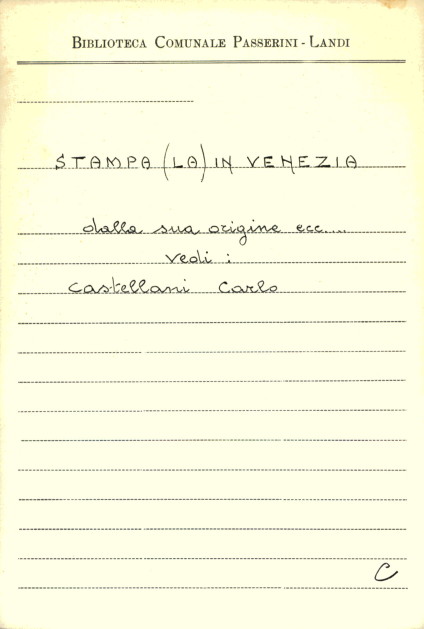 BIBLIOTECA COMUNALE PASSERINI - LANDI
STAMPA (LA) IN VENEZIA
dalla sua origine ecc....
vedi :
Castellani Carlo
C